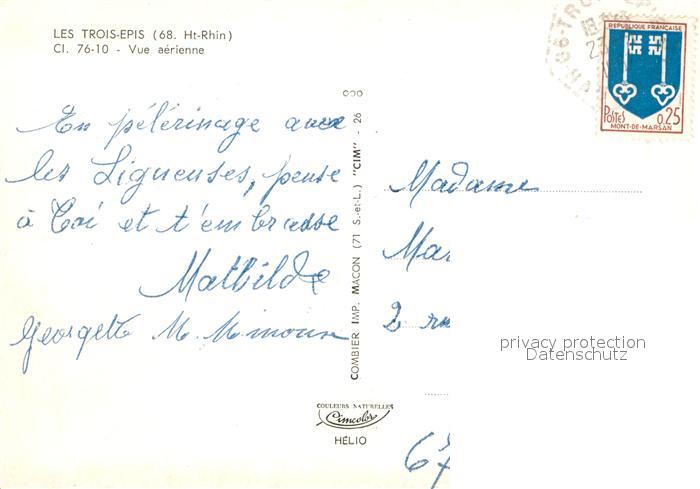 LES TROIS-EPIS (68. Ht-Rhin)
Cl. 76-10 - Vue aérienne
En pélérinage avec
les Ligueuses, pense
à Toi et t'embrasse
Mathilde
Georgette M.
COMBIER IMP. MACON (71 S.-et-L.) "CIM" - 26
COULEURS NATURELLES
Cimcolor
HÉLIO
REPUBLIQUE FRANÇAISE
POSTES 0,25
MONT-DE-MARSAN
Madame
Ma
2 ru
privacy protection
Datenschutz
67